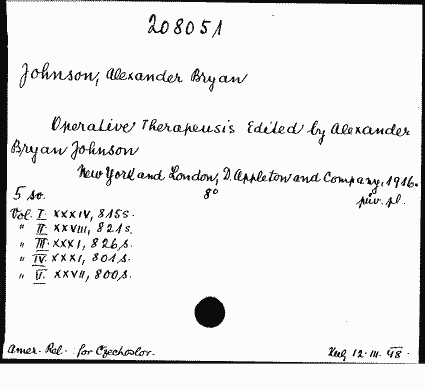 208051
Johnson, Alexander Bryan
Operative Therapeusis Edited by Alexander
Bryan Johnson
New York and London, D. Appleton and Company, 1916.
5 sv. 8° pův. pl.
Vol. I. XXXIV, 815 s.
" II. XXVIII, 821 s.
" III. XXXI, 826, s.
" IV. XXXI, 801 s.
" V. XXVII, 800, s.
Amer. Rel. for Czechoslov. 12. III. 48.